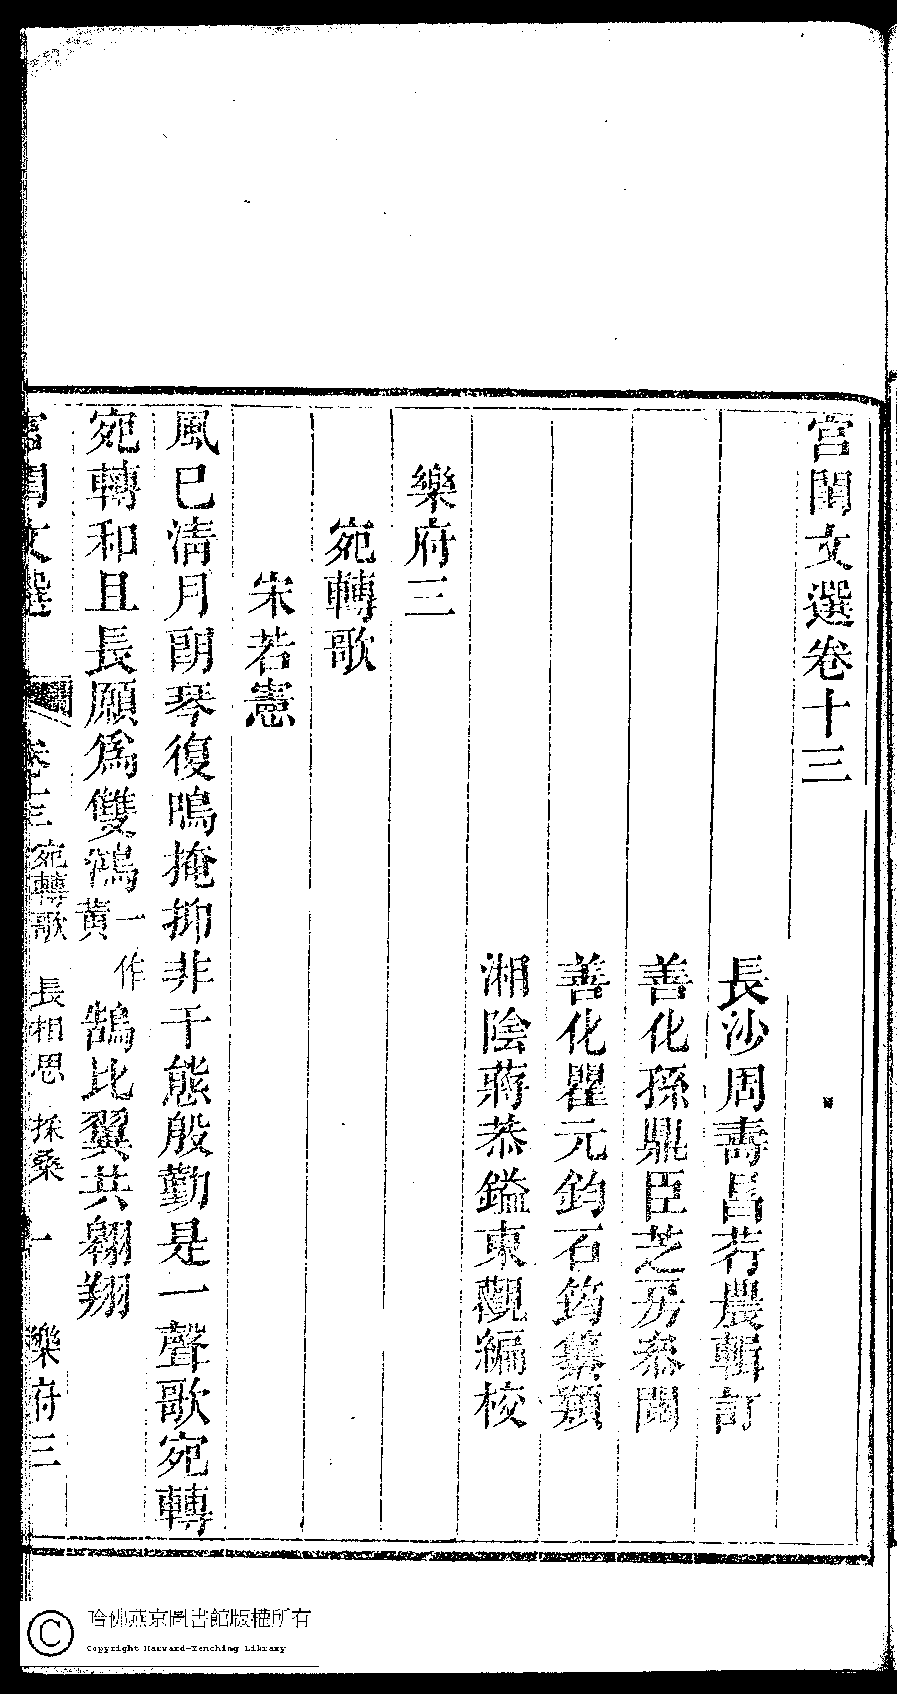 宮閨文選卷十三
長沙周壽昌荇農輯訂
善化孫鼎臣芝房叅閱
善化瞿元鈞石筠纂類
湘陰蔣恭鎰東觀編校
樂府三
宛轉歌
宋若憲
風已清月朗琴復鳴掩抑非干態殷勤是一聲歌宛轉
宛轉和且長願爲雙鴻一作黃鵠比翼共翱翔
宮閨文選 卷十三 宛轉歌 長相思 採桑 一 樂府三
哈佛燕京圖書館版權所有
Copyright Harvard-Yenching Library